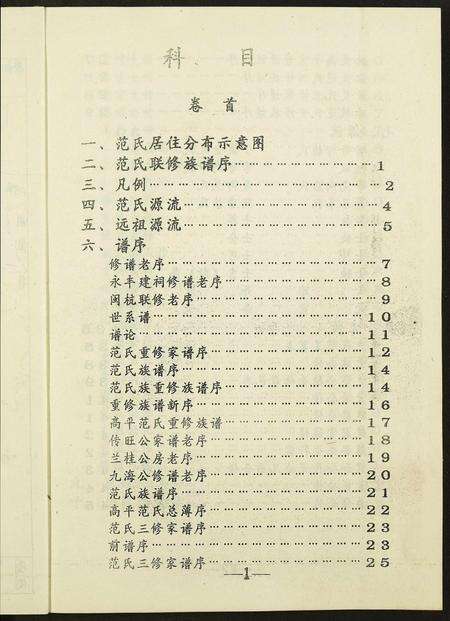 科 目
卷 首
一、范氏居住分布示意图
二、范氏联修族谱序……………………1
三、凡例……………………2
四、范氏源流……………………4
五、远祖源流……………………5
六、谱序
修谱老序……………………7
永丰建祠修谱老序……………………8
闽杭联修老序……………………9
世系谱……………………10
谱论……………………11
范氏重修家谱序……………………12
范氏族谱序……………………14
范氏族重修族谱序……………………14
重修族谱新序……………………16
高平范氏重修族谱……………………17
传旺公家谱老序……………………18
兰桂公房老序……………………19
九海公修谱老序……………………20
范氏族谱序……………………21
高平范氏总薄序……………………22
范氏三修家谱序……………………23
前谱序……………………23
范氏三修家谱序……………………25
—1—